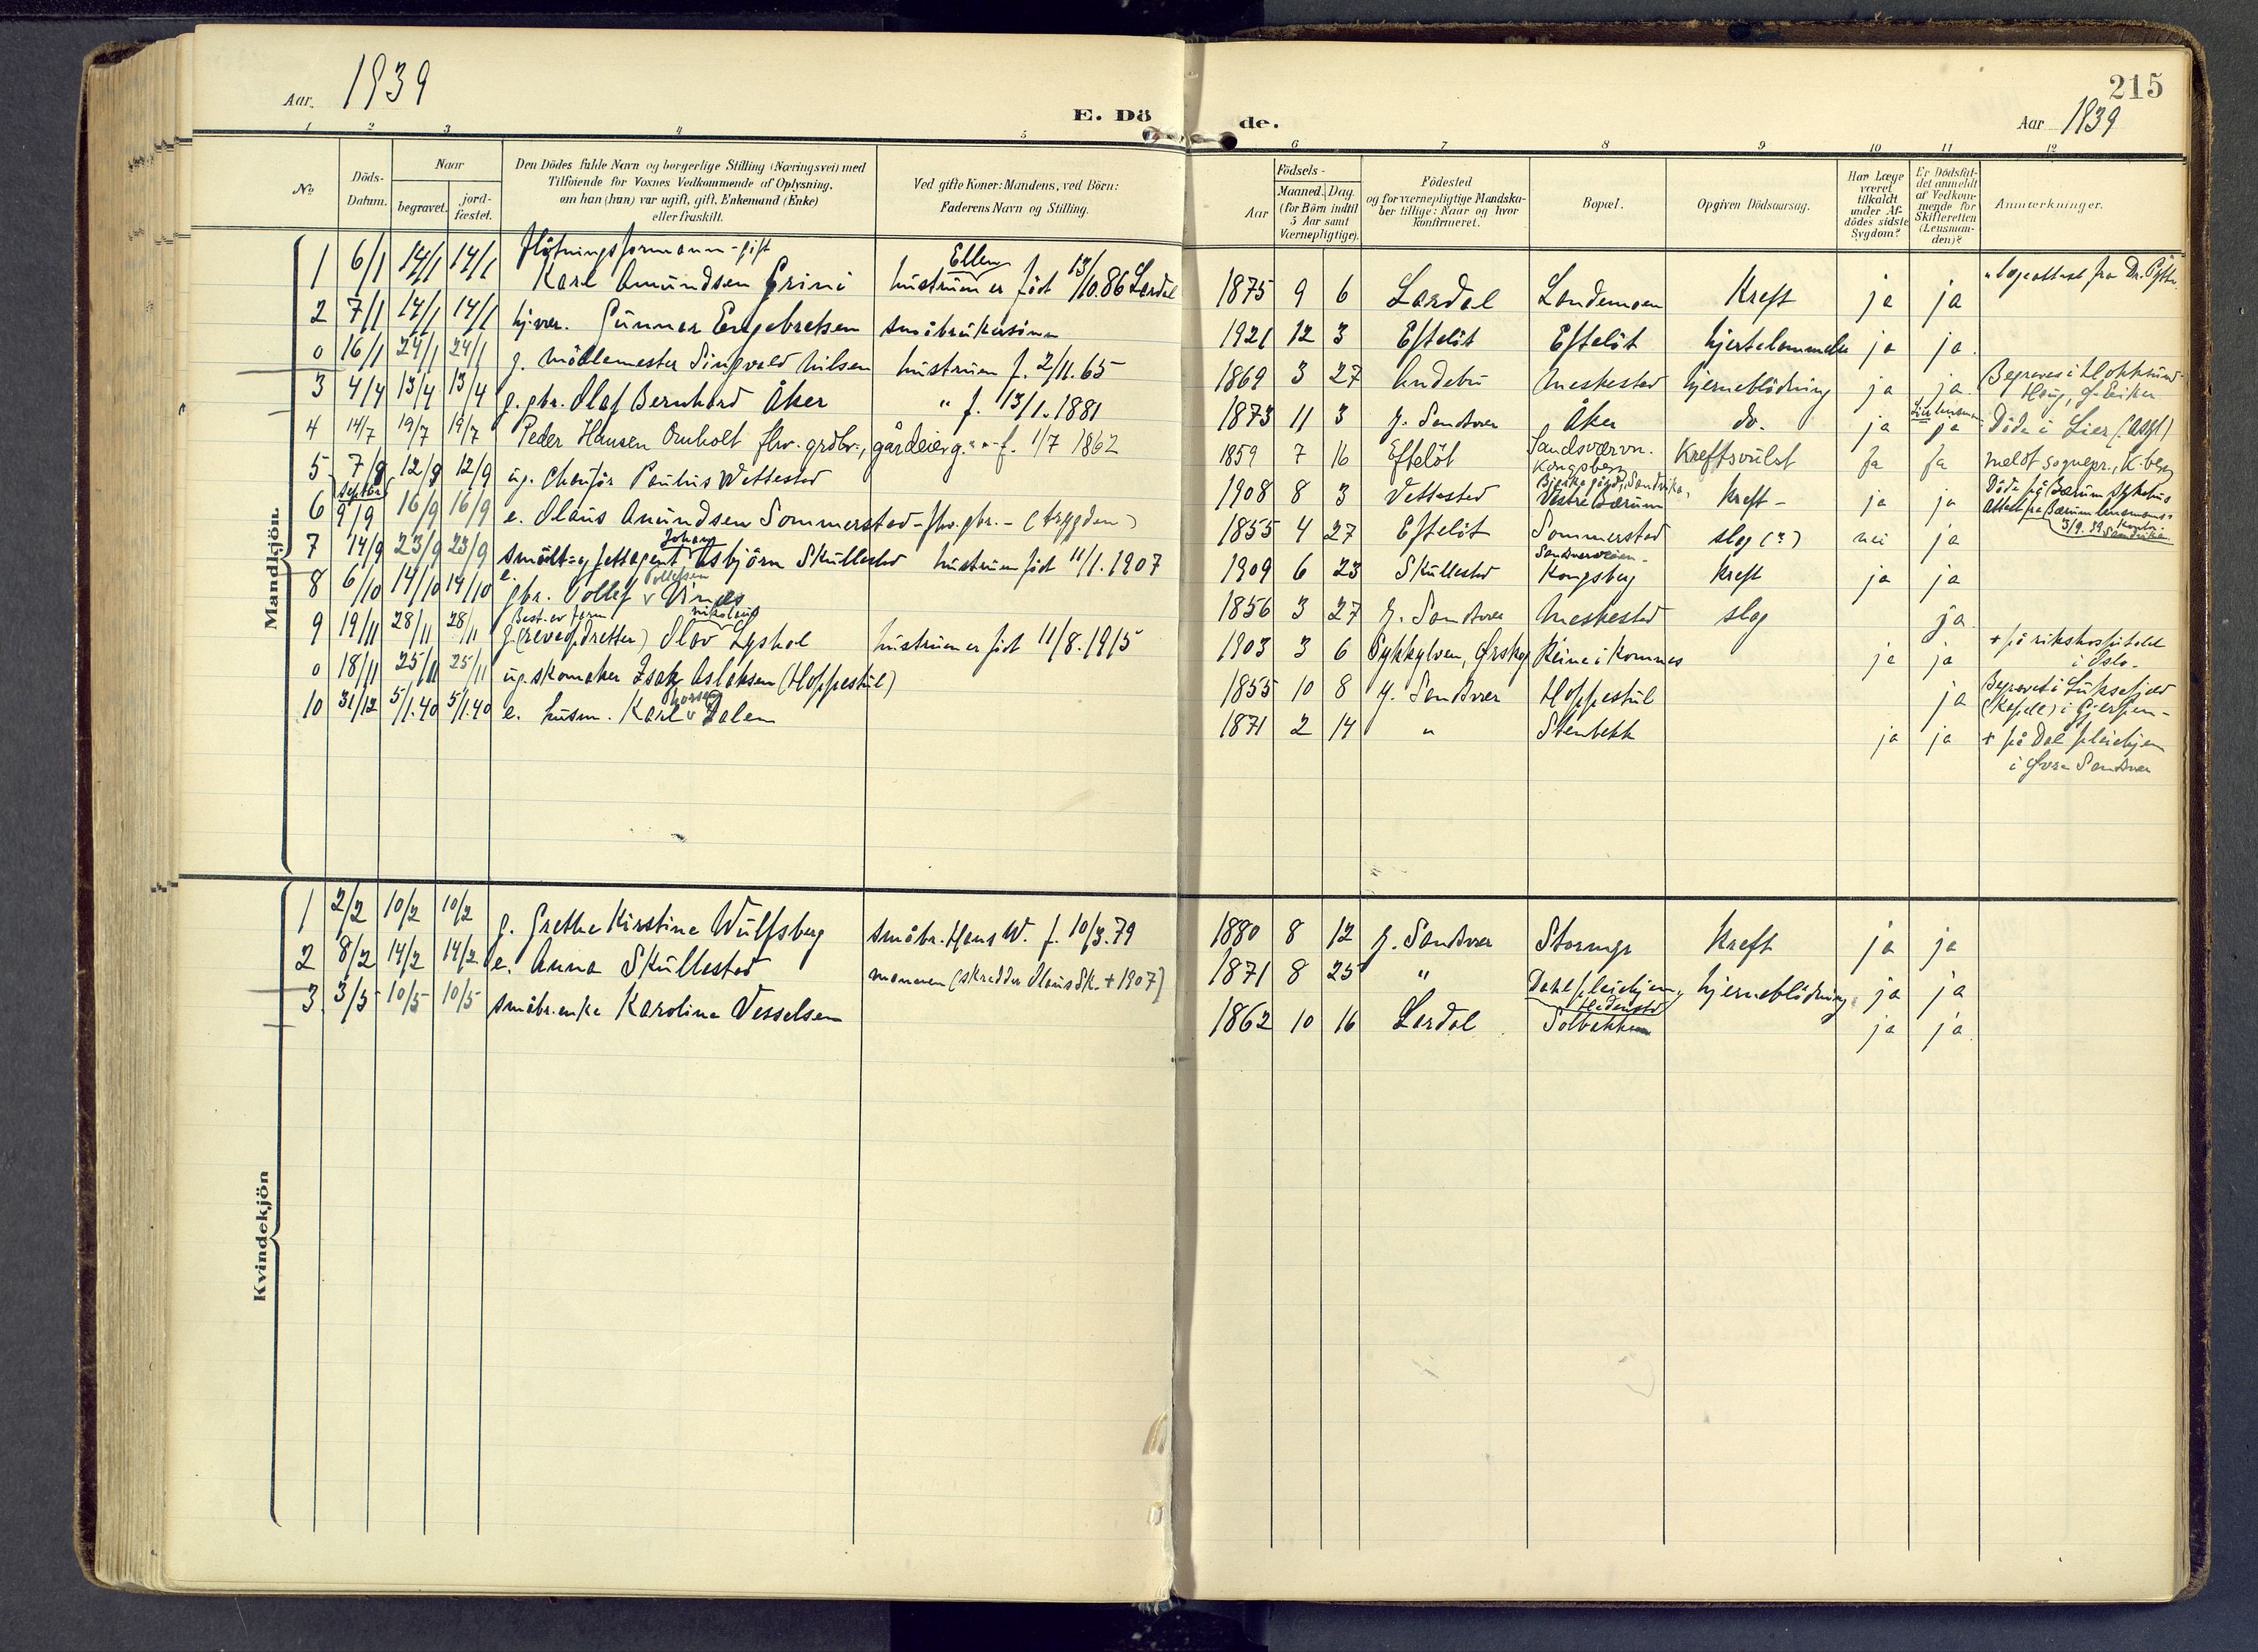 Aar. 1939
E. Dö de.
215
Aar 1939
1 2 3 4 5 6 7 8 9 10 11 12
No
Döds-Datum.
Naar
begravet. jord-fæstet.
Den Dödes fulde Navn og borgerlige Stilling (Næringsvei) med
Tilföiende for Voxnes Vedkommende af Oplysning,
om han (hun) var ugift, gift, Enkemand (Enke)
eller fraskilt.
Ved gifte Koner: Mandens, ved Börn:
Faderens Navn og Stilling.
Födsels-
Aar Maaned. Dag.
(for Börn indtil
5 Aar samt
Værnepligtige).
Födested
og for værnepligtige Mandska-
ber tillige: Naar og hvor
konfirmeret.
Bopæl.
Opgiven Dödsaarsag.
Har Læge
været
tilkaldt
under Af-
dödes sidste
Sygdom?
Er Dödsfal-
det anmeldt
af Vedkom-
mende for
Skifteretten
(Lensman-
den)?
Anmærkninger.
Mandkjön.
1 6/1 14/1 14/1 Flötningsformann - gift Karl Amundsen Grini Ellen hustruen er födt 13/10.86 Lardal 1875 9 6 Lardal Landemoen Kreft ja ja
2 7/1 14/1 14/1 hj.vær. Gunnar Engebretsen småbrukersönn 1921 12 3 Eftelöt Eftelöt hjertelammelse ja ja.
0 16/1 24/1 24/1 g. möllemester Singvald Nilsen hustruen f. 2/11.65 1869 3 27 Andebu Meskestad hjerneblödning ja ja. Begraves i Hokksund - Haug, Ö. Eiker
3 4/4 13/4 13/4 g. gbr. Olaf Bernhard Åker " f. 13/1.1881 1873 11 3 Y. Sandsvær Åker do. ja Lier lensman ja Döde i Lier (Asyl)
4 14/7 19/7 19/7 Peder Hansen Ornholt fhv. grdbr., gårdeier g. " - f. 1/7 1862 1859 7 16 Eftelöt Sandsværvn. Kongsberg Kreftsvulst Ja Ja meldt sognepr., K.berg
5 7/9 12/9 12/9 ug. Chaufför Paulus Wettestad 1908 8 3 Vettestad Bjerkegård, Sandvika, Vestre Bærum Kreft - ja ja Döde på Bærum Sykehus Attest fra Bærum lensmanns- kontor. 3/9.39 Sandvika
6 septbr 9/9 16/9 16/9 e. Olaus Amundsen Sommerstad - fhv. gbr. - (trygden) 1855 4 27 Eftelöt Sommerstad slag (?) nei ja
7 14/9 23/9 23/9 småbr. og fettagent Johan Asbjörn Skullestad hustruen födt 11/1.1907 1909 6 23 Skullestad Sandsværveien - Kongsberg Kreft ja ja
8 6/10 14/10 14/10 e. gbr. Tollef Tollefsen Vinnes 1856 3 27 Y. Sandsvær Meskestad slag ja
9 19/11 28/11 28/11 g. Best. av farm (reveopdretter) Olav Nikolai Lyshol hustruen er födt 11/8.1915 1903 3 6 Sykkylven, Ørskog Reine i Komnes ja ja + på rikshospitalet i Oslo.
0 18/11 25/11 25/11 ug. skomaker Isak Aslaksen (Hoppestul) 1855 10 8 Y. Sandsvær Hoppestul ja Begravet i Luksefjell (Kapell) i Gjerpen -
10 31/12 5/1.40 5/1.40 e. husm. Karl Dalem 1871 2 14 " Stenbekk ja ja + på Dal pleiehjem i Øvre Sandsvær
Kvindekjön
1 2/2 10/2 10/2 g. Grethe Kirstine Wulfsberg småbr. Hans W. f. 10/3.79 1880 8 12 Y. Sandsvær Kreft ja ja
2 8/2 14/2 14/2 e. Anna Skullestad mannen (skredder Olaus Sk. + 1907) 1871 8 25 " Dahl pleiehjem, Hedenstad hjerneblödning ja ja
3 3/5 10/5 10/5 småbr.enke Karoline Vesselsen 1862 10 16 Lardal Solbakken ja ja.